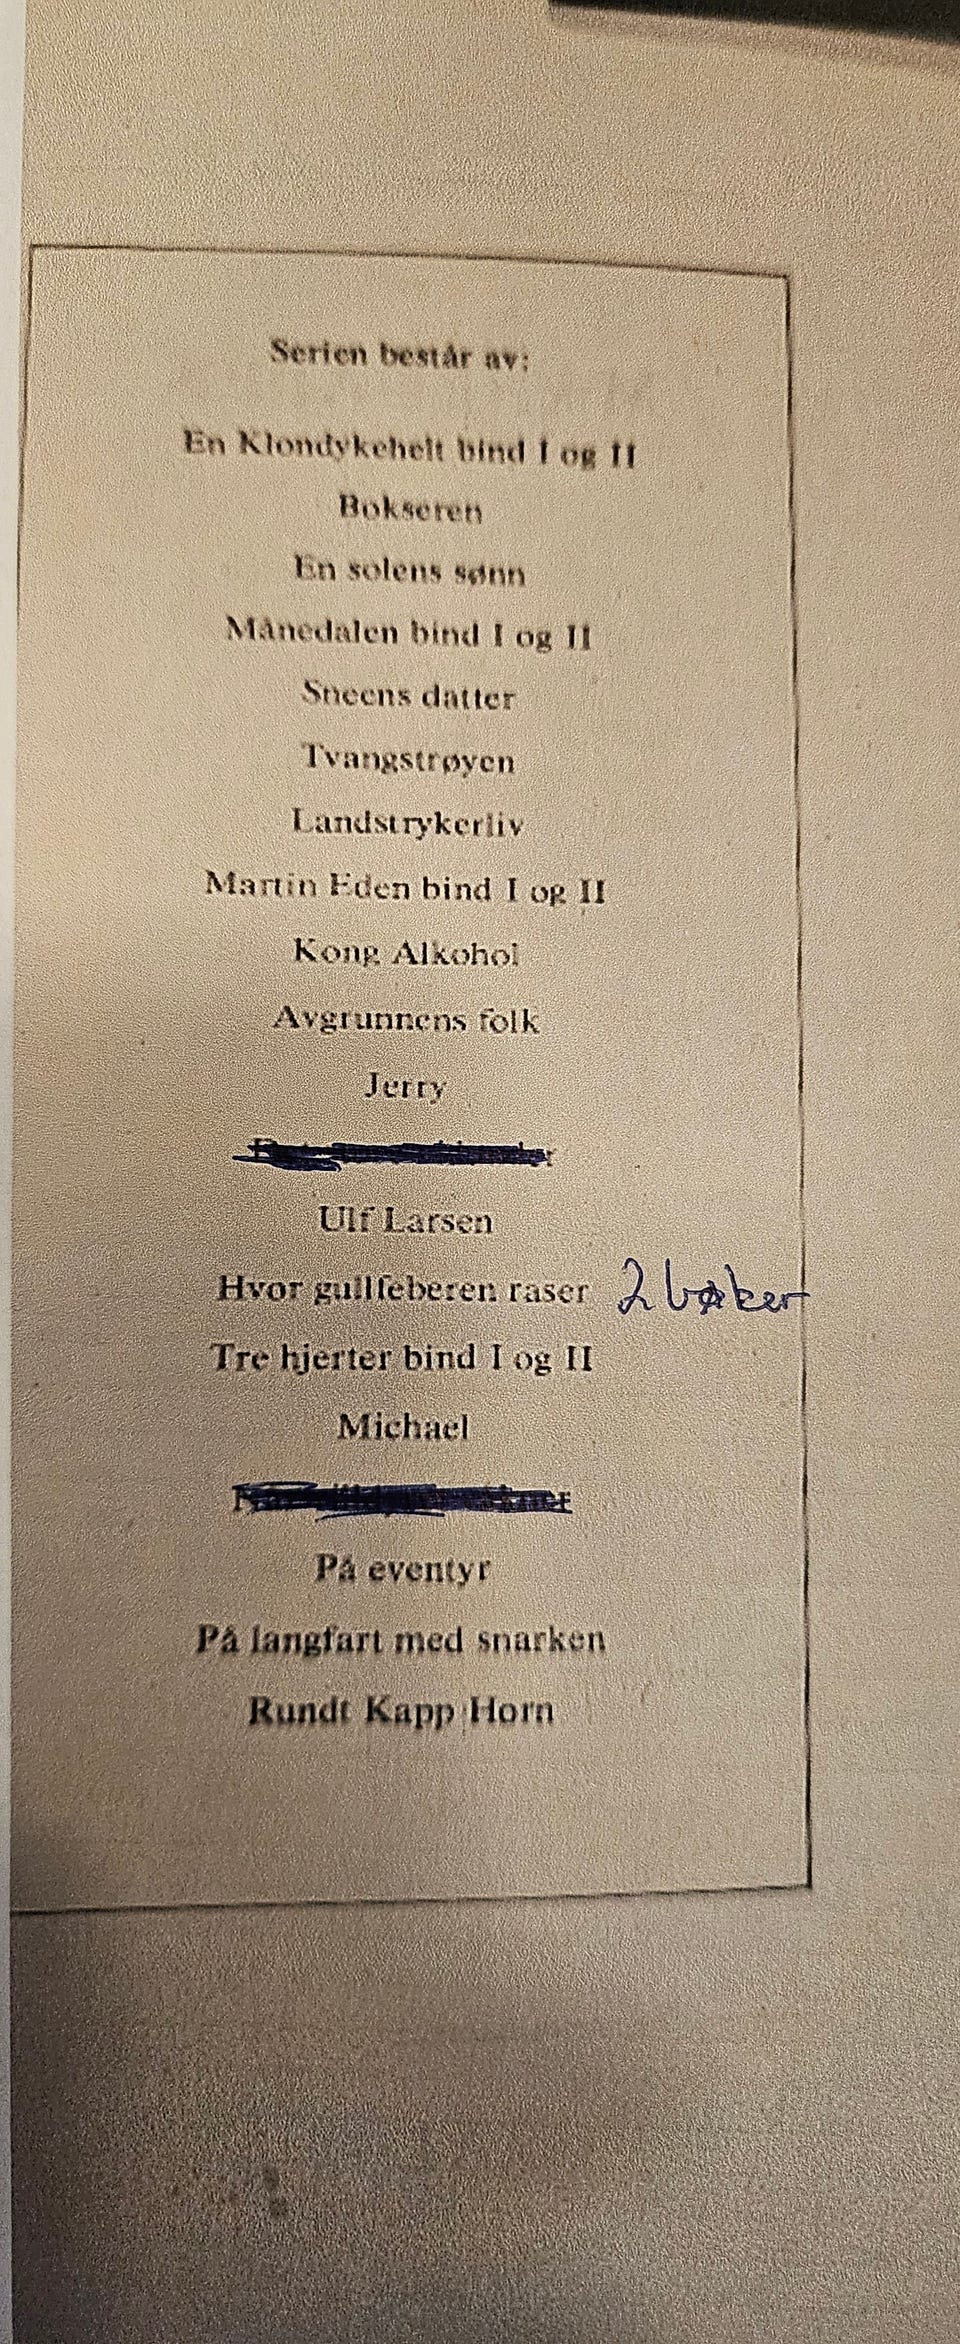 Serien består av:
En Klondykehelt bind I og II
Bokseren
En solens sønn
Månedalen bind I og II
Sneens datter
Tvangstrøyen
Landstrykerliv
Martin Eden bind I og II
Kong Alkohol
Avgrunnens folk
Jerry
Ulf Larsen
Hvor gullfeberen raser 2 bøker
Tre hjerter bind I og II
Michael
På eventyr
På langfart med snarken
Rundt Kapp Horn